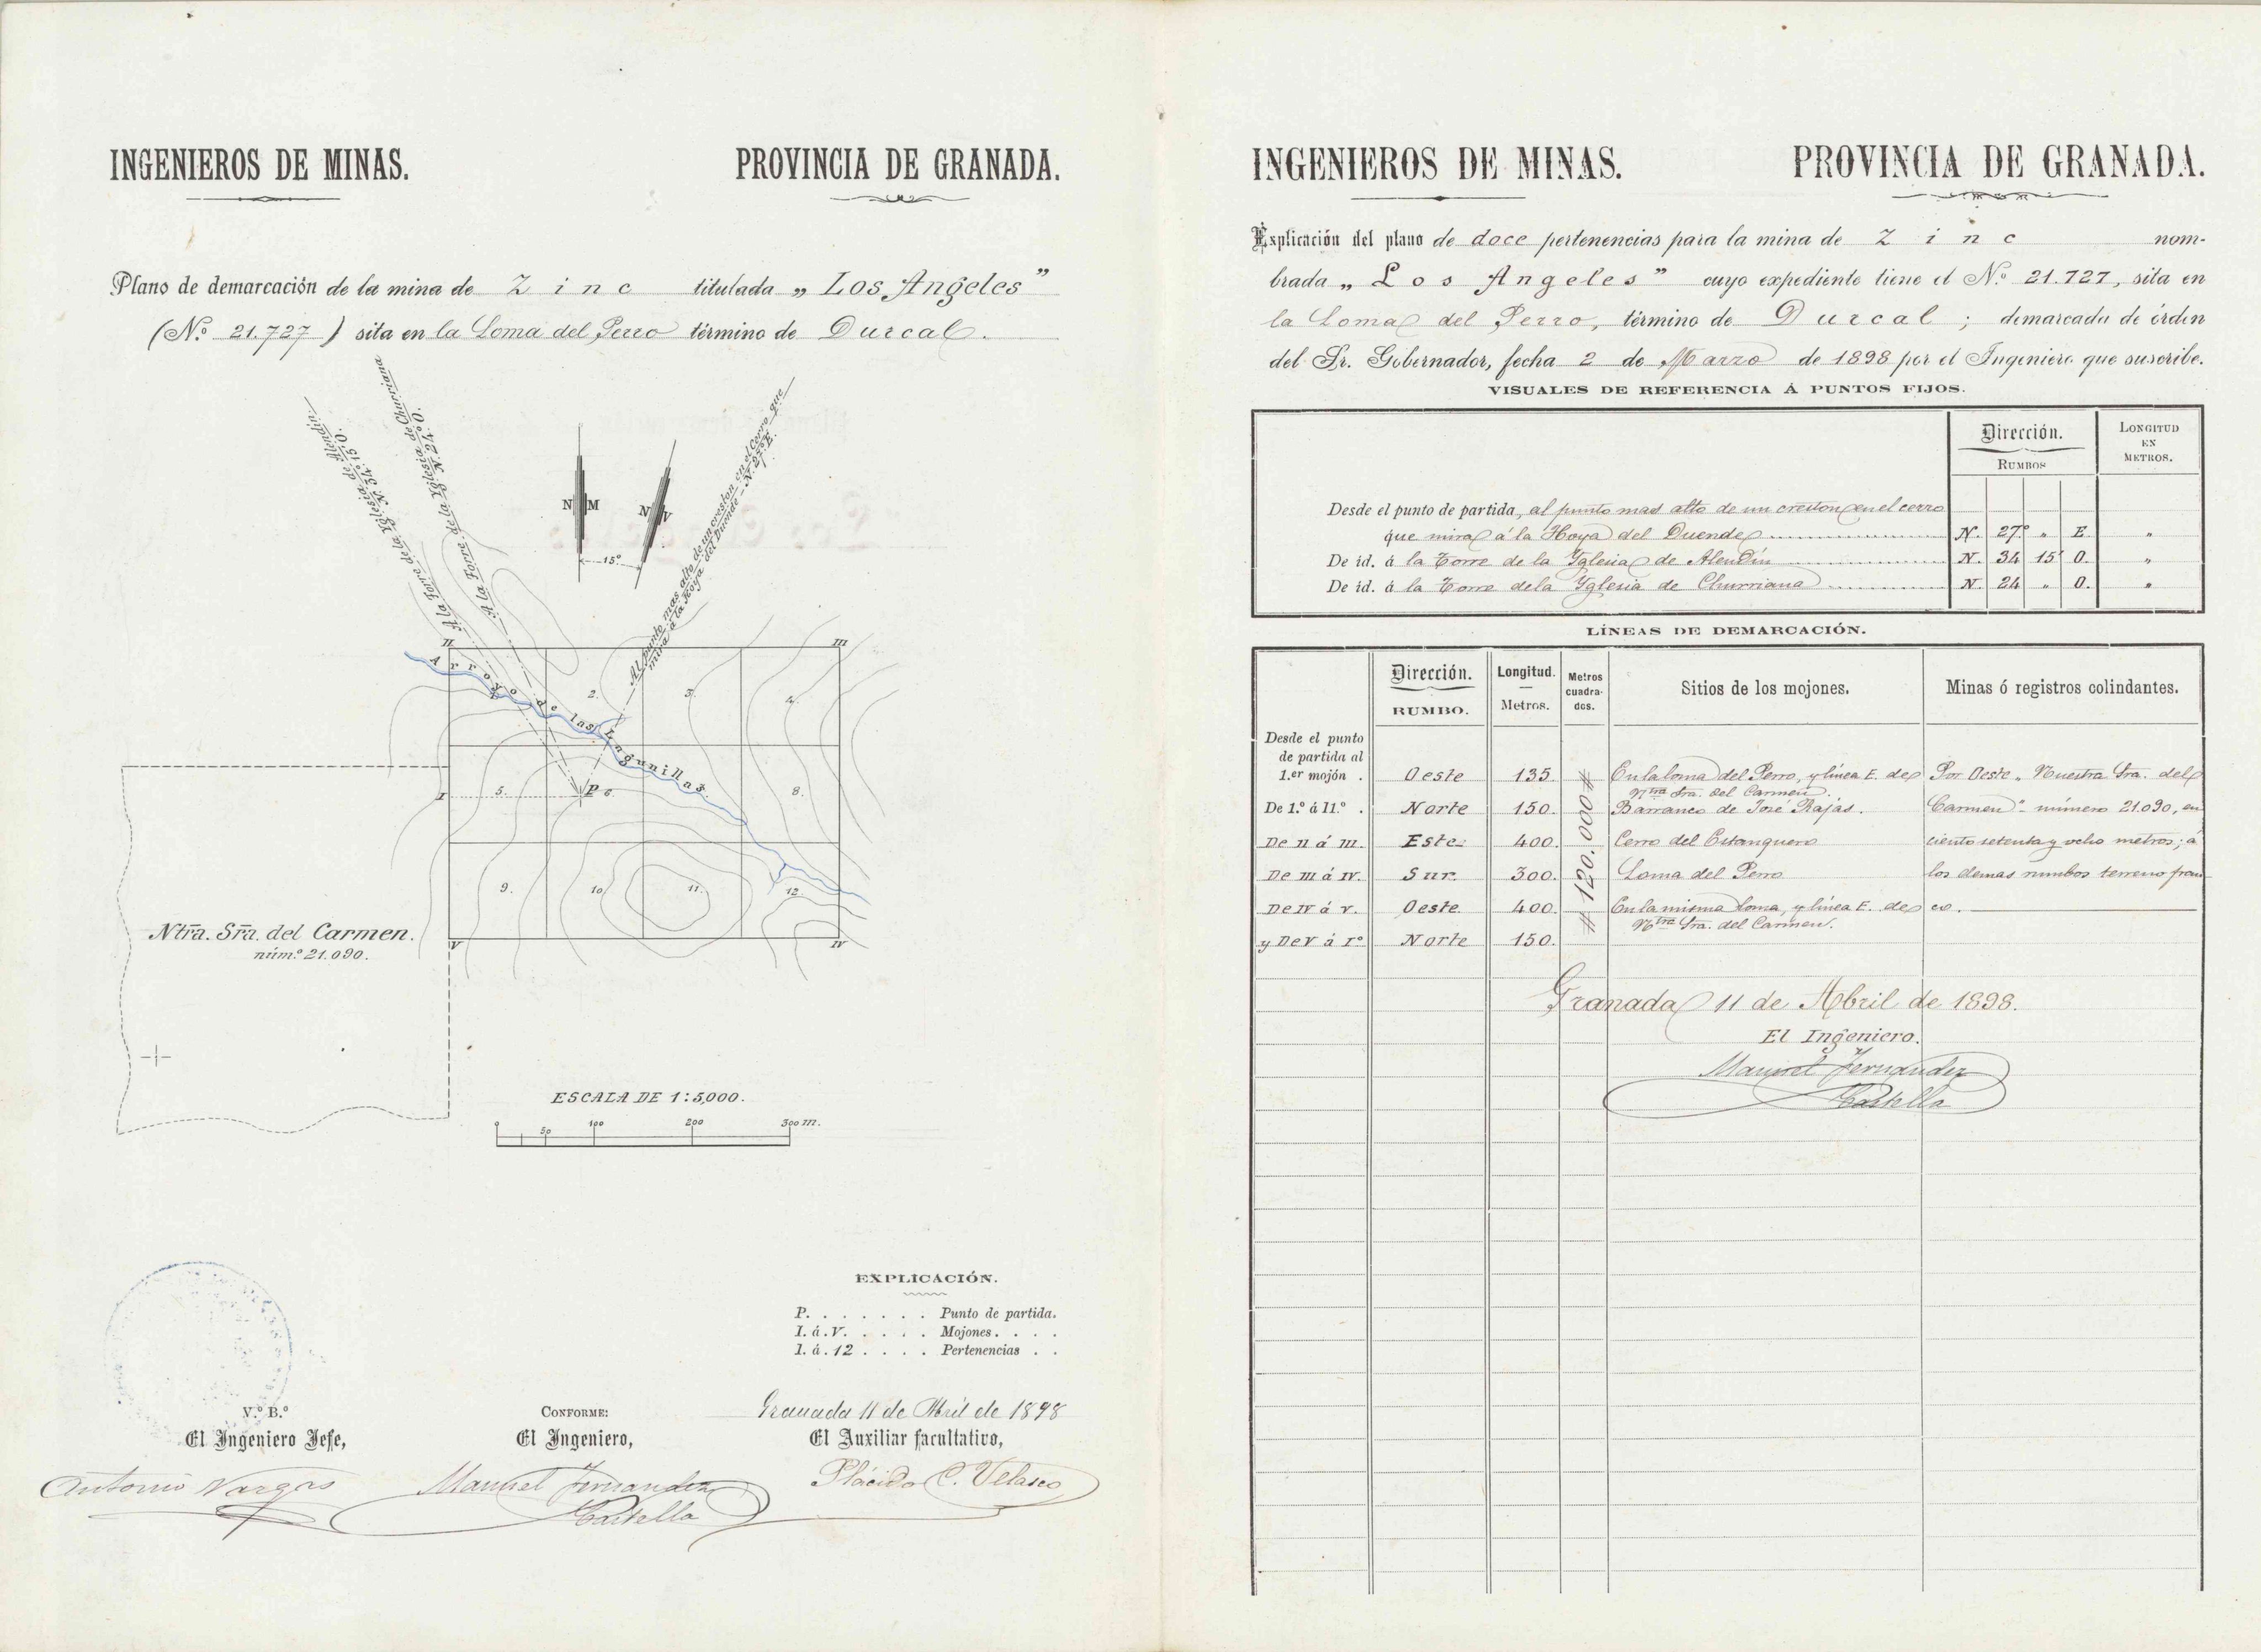 INGENIEROS DE MINAS. PROVINCIA DE GRANADA.
Plano de demarcación de la mina de Zinc titulada „ Los Angeles ”
(N.º 21.727) sita en la Loma del Perro término de Durcal.
A la Torre de la Yglesia de Alendin
N. 34º 15' O.
A la Torre de la Yglesia de Churriana
N. 24º O.
Al punto mas alto de un creston en el Cerro que
mira a la Hoya del Duende - N. 27º E.
N M
N V
15º
II III
Arroyo de las Lagunillas
2. 3. 4.
I 5. P 6. 8.
9. 10. 11. 12.
V IV
Ntra. Sra. del Carmen.
núm.º 21.090.
ESCALA DE 1:5,000.
0 50 100 200 300 m.
EXPLICACIÓN.
P. . . . . . . Punto de partida.
I. á. V. . . . . Mojones. . . .
1. á. 12 . . . . Pertenencias . .
Granada 11 de Abril de 1898
V.º B.º CONFORME:
El Ingeniero Jefe, El Ingeniero, El Auxiliar facultativo,
Antonio Vargas Manuel Fernandez Plácido C. Velasco
Castella
INGENIEROS DE MINAS. PROVINCIA DE GRANADA.
Explicación del plano de doce pertenencias para la mina de Zinc nom-
brada „ Los Angeles ” cuyo expediente tiene el N.º 21.727, sita en
la Loma del Perro, término de Durcal; demarcada de órden
del Sr. Gobernador, fecha 2 de Marzo de 1898 por el Ingeniero que suscribe.
VISUALES DE REFERENCIA Á PUNTOS FIJOS.
Dirección. LONGITUD EN METROS.
RUMBOS
Desde el punto de partida, al punto mas alto de un creston en el cerro
que mira á la Hoya del Duende N. 27º „ E. „
De id. á la Torre de la Yglesia de Alendín N. 34 15' O. „
De id. á la Torre de la Yglesia de Churriana N. 24 „ O. „
LÍNEAS DE DEMARCACIÓN.
Dirección. RUMBO. Longitud. Metros. Metros cuadra-dos. Sitios de los mojones. Minas ó registros colindantes.
Desde el punto
de partida al
1.er mojón . Oeste 135. En la loma del Perro, y línea E. de Por Oeste „ Nuestra Sra. del
Ntra Sra. del Carmen.
De 1.º á II.º . Norte 150. Barranco de José Rajas. Carmen" número 21.090, en
De II á III. Este. 400. Cerro del Estanquero ciento setenta y ocho metros; á
De III á IV. Sur. 300. Loma del Perro los demas rumbos terreno fran
De IV á V. Oeste. 400. En la misma loma, y línea E. de co.
Ntra Sra. del Carmen.
y De V á Iº Norte 150.
# 120.000 #
Granada 11 de Abril de 1898.
El Ingeniero.
Manuel Fernandez
Castella